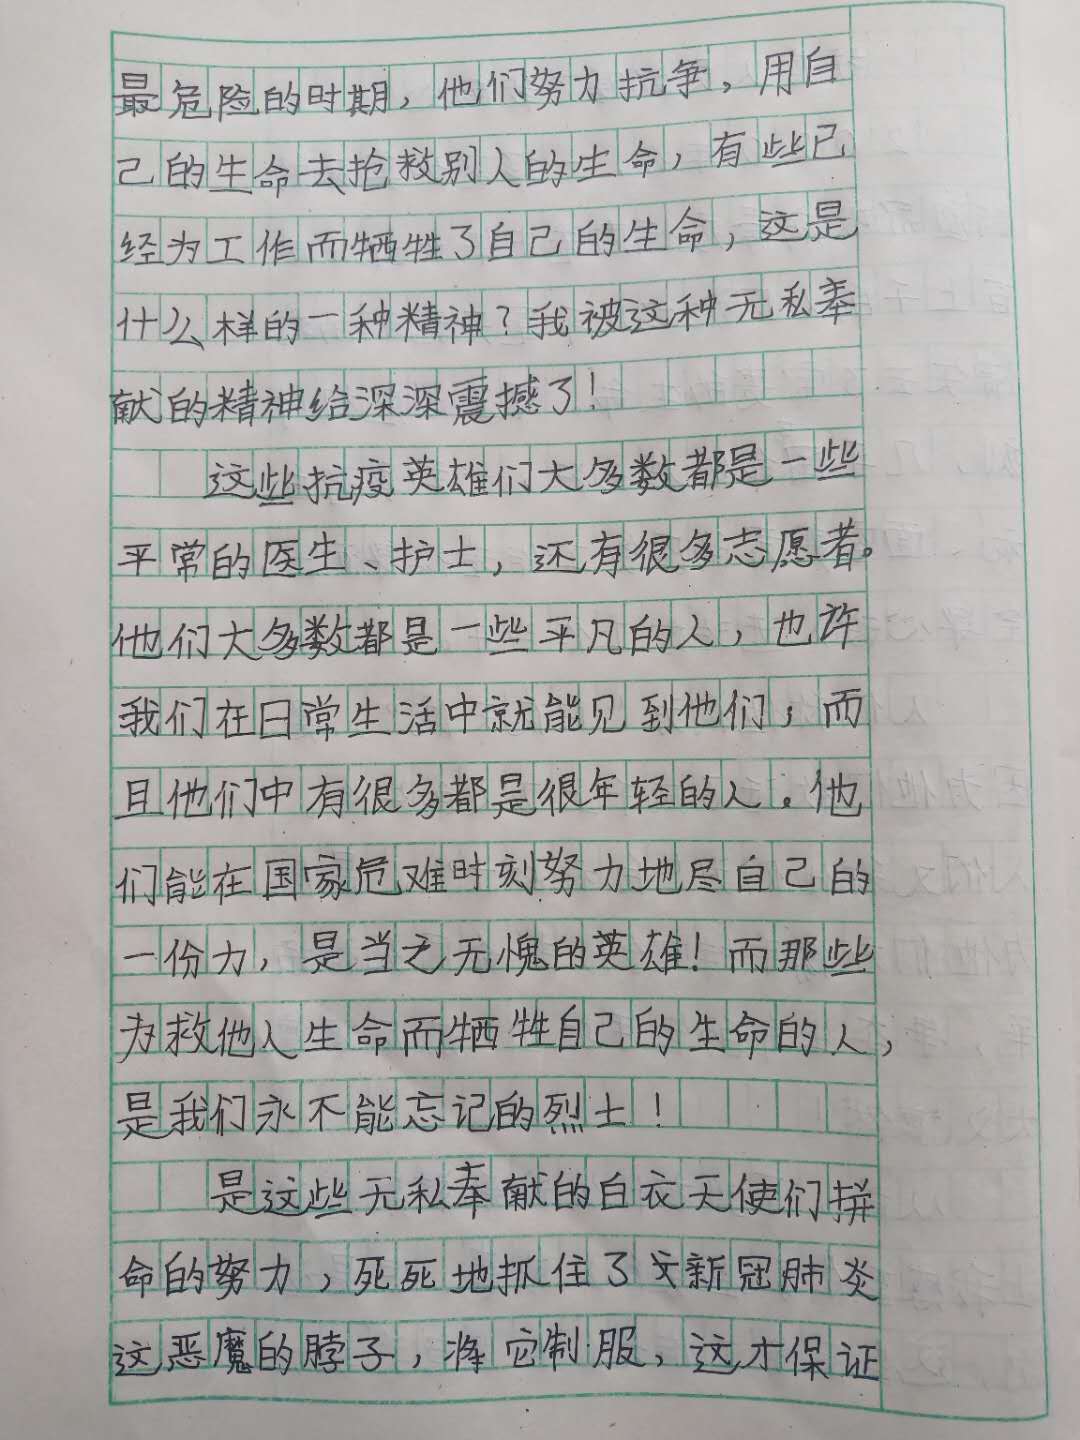 最危险的时期，他们努力抗争，用自
己的生命去抢救别人的生命，有些已
经为工作而牺牲了自己的生命，这是
什么样的一种精神？我被这种无私奉
献的精神给深深震撼了！
这些抗疫英雄们大多数都是一些
平常的医生、护士，还有很多志愿者。
他们大多数都是一些平凡的人，也许
我们在日常生活中就能见到他们，而
且他们中有很多都是很年轻的人。他
们能在国家危难时刻努力地尽自己的
一份力，是当之无愧的英雄！而那些
为救他人生命而牺牲自己的生命的人，
是我们永不能忘记的烈士！
是这些无私奉献的白衣天使们拼
命的努力，死死地抓住了新冠肺炎
这恶魔的脖子，将它制服，这才保证